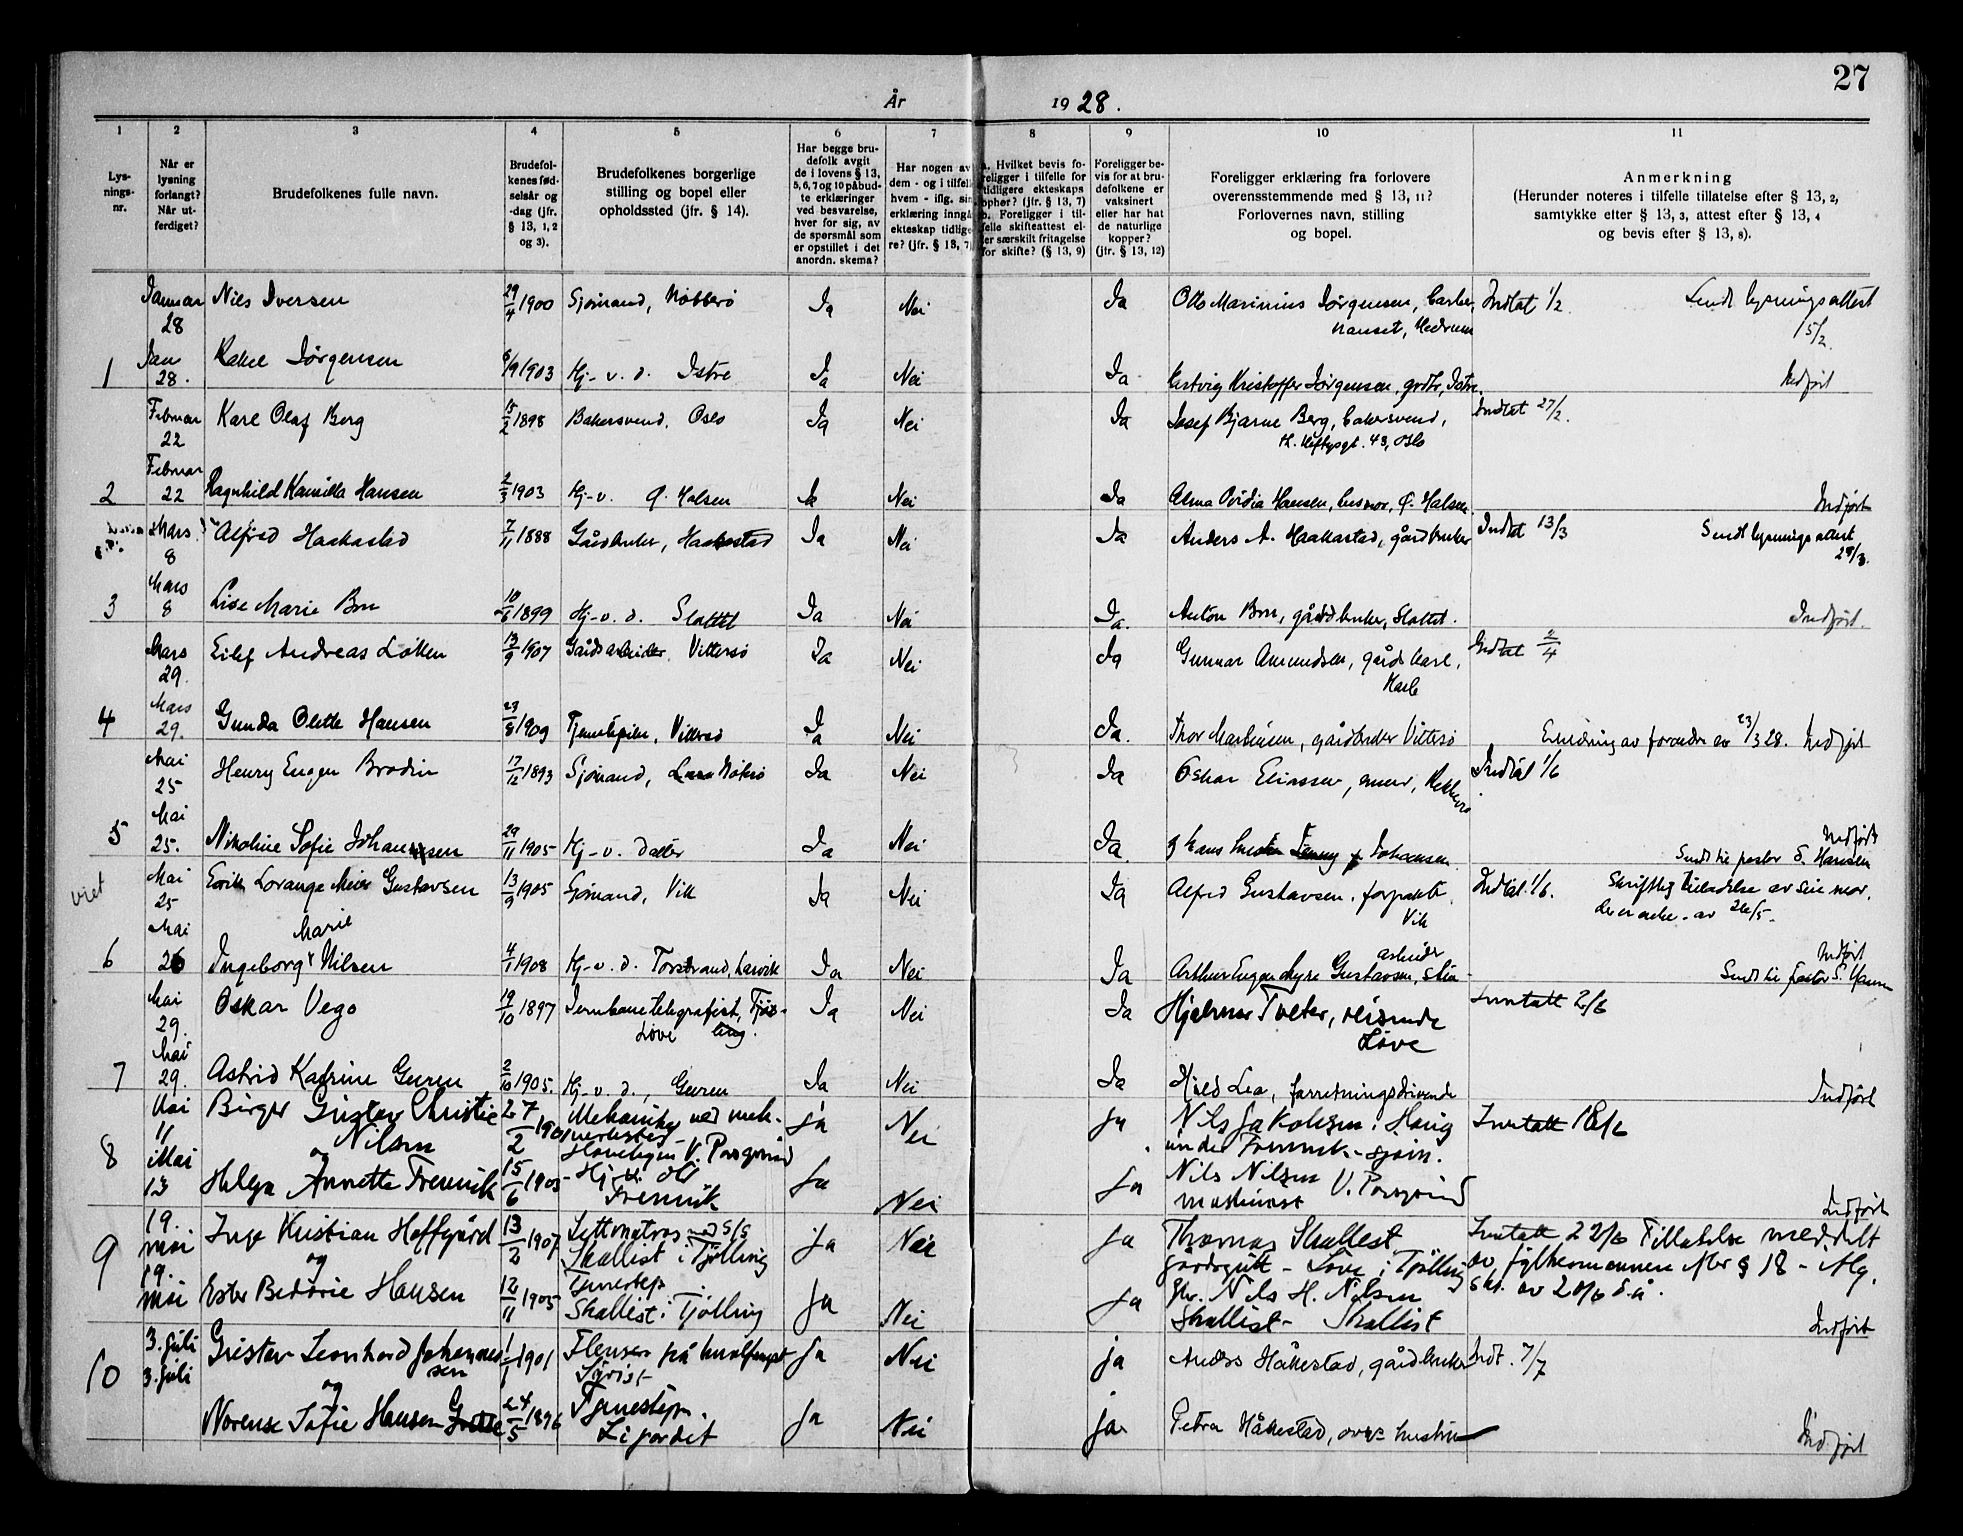 27
År 1928.
1 2 3 4 5 6 7 8 9 10 11
Lysningsnr.
Når er lysning forlangt? Når utferdiget?
Brudefolkenes fulle navn.
Brudefolkenes fødselsår og -dag (jfr. § 13, 1, 2 og 3).
Brudefolkenes borgerlige stilling og bopel eller opholdssted (jfr. § 14).
Har begge brudefolk avgit de i lovens § 13, 5, 6, 7 og 10 påbudte erklæringer ved besvarelse, hver for sig, av de spørsmål som er opstillet i det anordn. skema?
Har nogen av dem - og i tilfelle hvem - iflg. sin erklæring inngått ekteskap tidligere? (jfr. § 13, 7)
a. Hvilket bevis foreligger i tilfelle for tidligere ekteskaps ophør? (jfr. § 13, 7) b. Foreligger i tilfelle skifteattest eller særskilt fritagelse for skifte? (§ 13, 9)
Foreligger bevis for at brudefolkene er vaksinert eller har hat de naturlige kopper? (jfr. § 13, 12)
Foreligger erklæring fra forlovere overensstemmende med § 13, 11? Forlovernes navn, stilling og bopel.
Anmerkning (Herunder noteres i tilfelle tillatelse efter § 13, 2, samtykke efter § 13, 3, attest efter § 13, 4 og bevis efter § 13, 8).
Januar 28 Nils Iversen 29/4 1900 Sjømand, Nøtterø Ja Nei Ja Otto Marinius Jørgensen, Indtat 1/2. Sendt lysningsattest 15/2.
Nanset, Hedrum
1 Jan 28. Rakel Jørgensen 6/9 1903 Hj-v. d. Istre Ja Nei Ja Hartvig Kristoffer Jørgensen, grdbr, Istre. Indført
Februar 22 Karl Olaf Berg 15/2 1898 Bakersvend, Oslo Ja Nei Ja Josef Bjarne Berg, bakersvend, Indtat 27/2.
Th. Heftyesgt. 43, Oslo
2 Februar 22 Ragnhild Kamilla Hansen 2/3 1903 Hj-v. Ø. Halsen Ja Nei Ja Alma Ovidia Hansen, husmor, Ø. Halsen Indført
Mars 8 Alfred Haakestad 7/11 1888 Gårdbruker, Haakestad Ja Nei Ja Anders A. Haakestad, gårdbruker Indtat 13/3 Sendt lysningsattest 28/3.
3 Mars 8 Lise Marie Bru 1899 Hj-v. d. Slottet Ja Nei Ja. Anton Bru, gårdbruker, Slottet. Indført.
Mars 29. Eilef Andreas Løken 13/9 1907 Gårdsarbeider, Vittersø Ja Nei Ja Gunnar Amundsen, gårdskarl, Indtat 2/4
4 Mars 29. Gunda Olette Hansen 23/8 1909 Tjenestepike, Vittersø Ja Nei Ja. Thor Martinsen, gårdbruker Vittersø av foreldre av 23/3 28. Indført
Mai 25 Henry Eugen Brodin 17/12 1893 Sjømand, Ja Nei Ja Oskar Eliassen, murer, Indtat 1/6
5 Mai 25. Nikoline Sofie Johannsen 29/11 1905 Hj-v. Dolter Ja Nei Ja Johansen Indført
Sendt til pastor S. Hansen
viet Mai 25 Lorange Meier Gustavsen 13/9 1905 Sjømand, Vik Ja Nei Ja Alfred Gustavsen, forpakter Indtat 1/6. Skriftlig tilladelse av sin mor.
Vik der er enke. av 26/5.
Marie
6 Mai 26 Ingeborg Nilsen 4/1 1908 Hj-v. d. Torstrand, Larvik Ja Nei Ja Arthur Eugen Myre Gustavsen, arbeider Indført
Sendt til pastor S. Hansen
Mai 29. Oskar Vego 19/10 1897 Jernbanetelegrafist, Tjøl- Ja Nei Ja Hjalmar Tveter, reisende Inntatt 2/6
Løve ling. Løve
7 Mai 29. Astrid Katrine Guren 2/10 1905. Hj-v. d., Guren Ja Nei Ja Hjald Lea, forretningsdrivende Indført
Mai 11 Birger Gustav Christie 27/2 1901 Mekaniker ved mek. Ja Nei Ja Nils Jakobsen Haug Inntatt 18/6
8 og Nilsen verksted V. Porsgrund
Mai 13 Helga Annette Fremnik 15/6 1905 Hj. Ja Nei Ja Nils Nilsen V. Porsgrund
Fremnik maskinist Indført
9 19. mai Inge Kristian Hoffgård 13/2 1907 Lettmatros S/S Ja Nei Ja Thomas Skallist Inntatt 22/6 Tillatelse meddelt
og Skallist i Tjølling gårdsgutt - Løve i Tjølling av fylkesmannen efter § 18 -
19. mai Ester Bedorie Hansen 12/11 1905 Tjenestep. Ja Nei Ja Nils H. Nilsen skr. av 20/6 d.å.
Skallist i Tjølling Skallist - Skallist Indført
10 3. juli Gustav Leonhard Johannessen 1/1 1901 Flenser på hvalfangst Ja Nei ja Anders Håkestad, gårdbruker Indt. 7/7
3. juli og
Norense Sofie Hansen 24/5 1896 Tjenestep. Ja Nei ja Petra Håkestad, hustru Indført